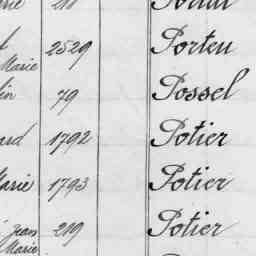 2529 Porteu
Marie
lin 79 Possel
ard 1792 Potier
Marie 1793 Potier
jean 219 Potier
Marie